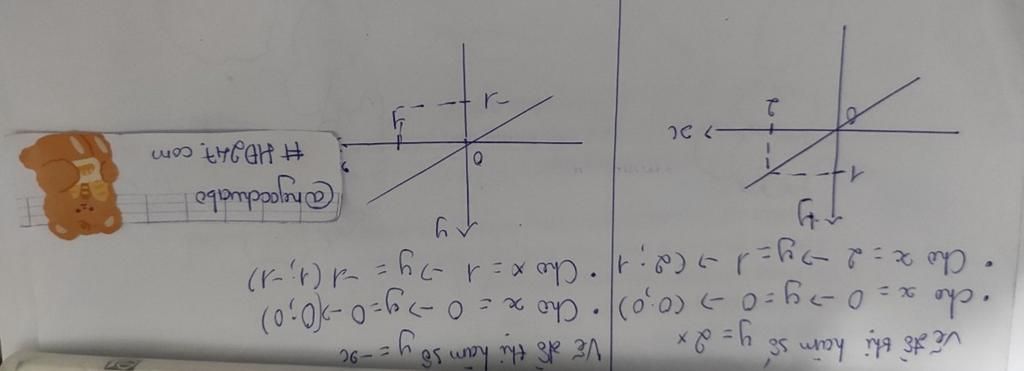 Vẽ đồ thị hàm số y = 2x
• Cho x = 0 -> y = 0 -> (0;0)
• Cho x = 2 -> y = 1 -> (2;1
y
1
0
2
> x
Vẽ đồ thị hàm số y = -x
• Cho x = 0 -> y = 0 -> (0;0)
• Cho x = 1 -> y = -1 (1;-1)
y
0
1
-1
@ngocduabo
# HD247.com